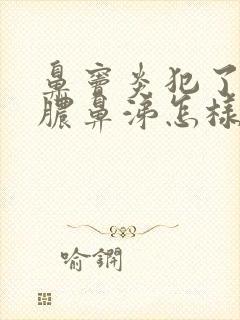 鼻窦炎犯了
脓鼻涕怎样
喻鐗